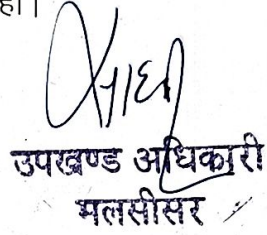 हो।
उपखण्ड अधिकारी
मलसीसर